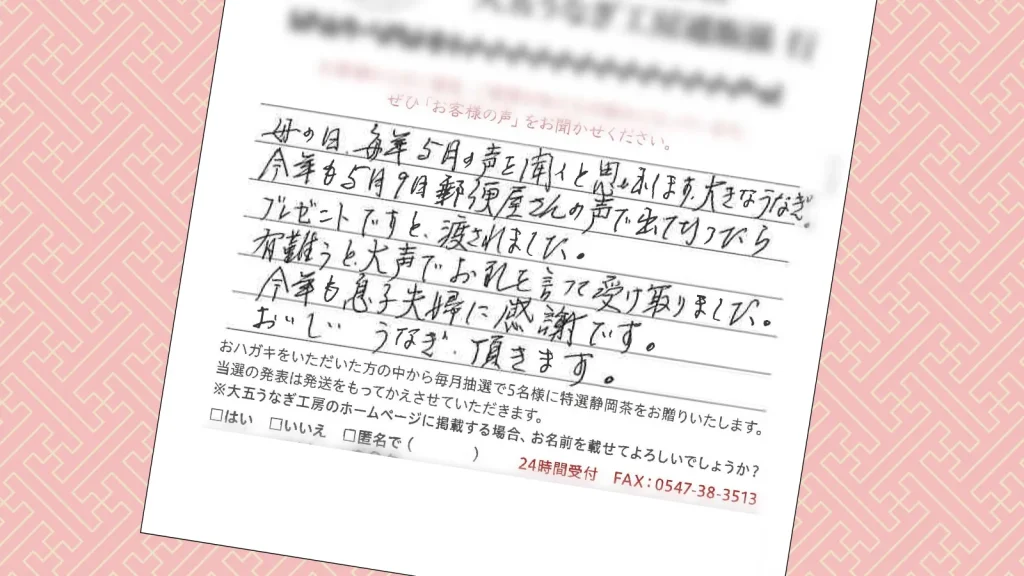 大五うなぎ工房通販係 行
ぜひ「お客様の声」をお聞かせください。
母の日、毎年5月の声を聞くと思い出します、大きなうなぎ。
今年も5月9日郵便屋さんの声で出て行ったら
プレゼントですと、渡されました。
有難うと、大声でお礼を言って受け取りました。
今年も息子夫婦に感謝です。
おいしい うなぎ、頂きます。
おハガキをいただいた方の中から毎月抽選で5名様に特選静岡茶をお贈りいたします。
当選の発表は発送をもってかえさせていただきます。
※大五うなぎ工房のホームページに掲載する場合、お名前を載せてよろしいでしょうか?
□はい □いいえ □匿名で( )
24時間受付 FAX:0547-38-3513